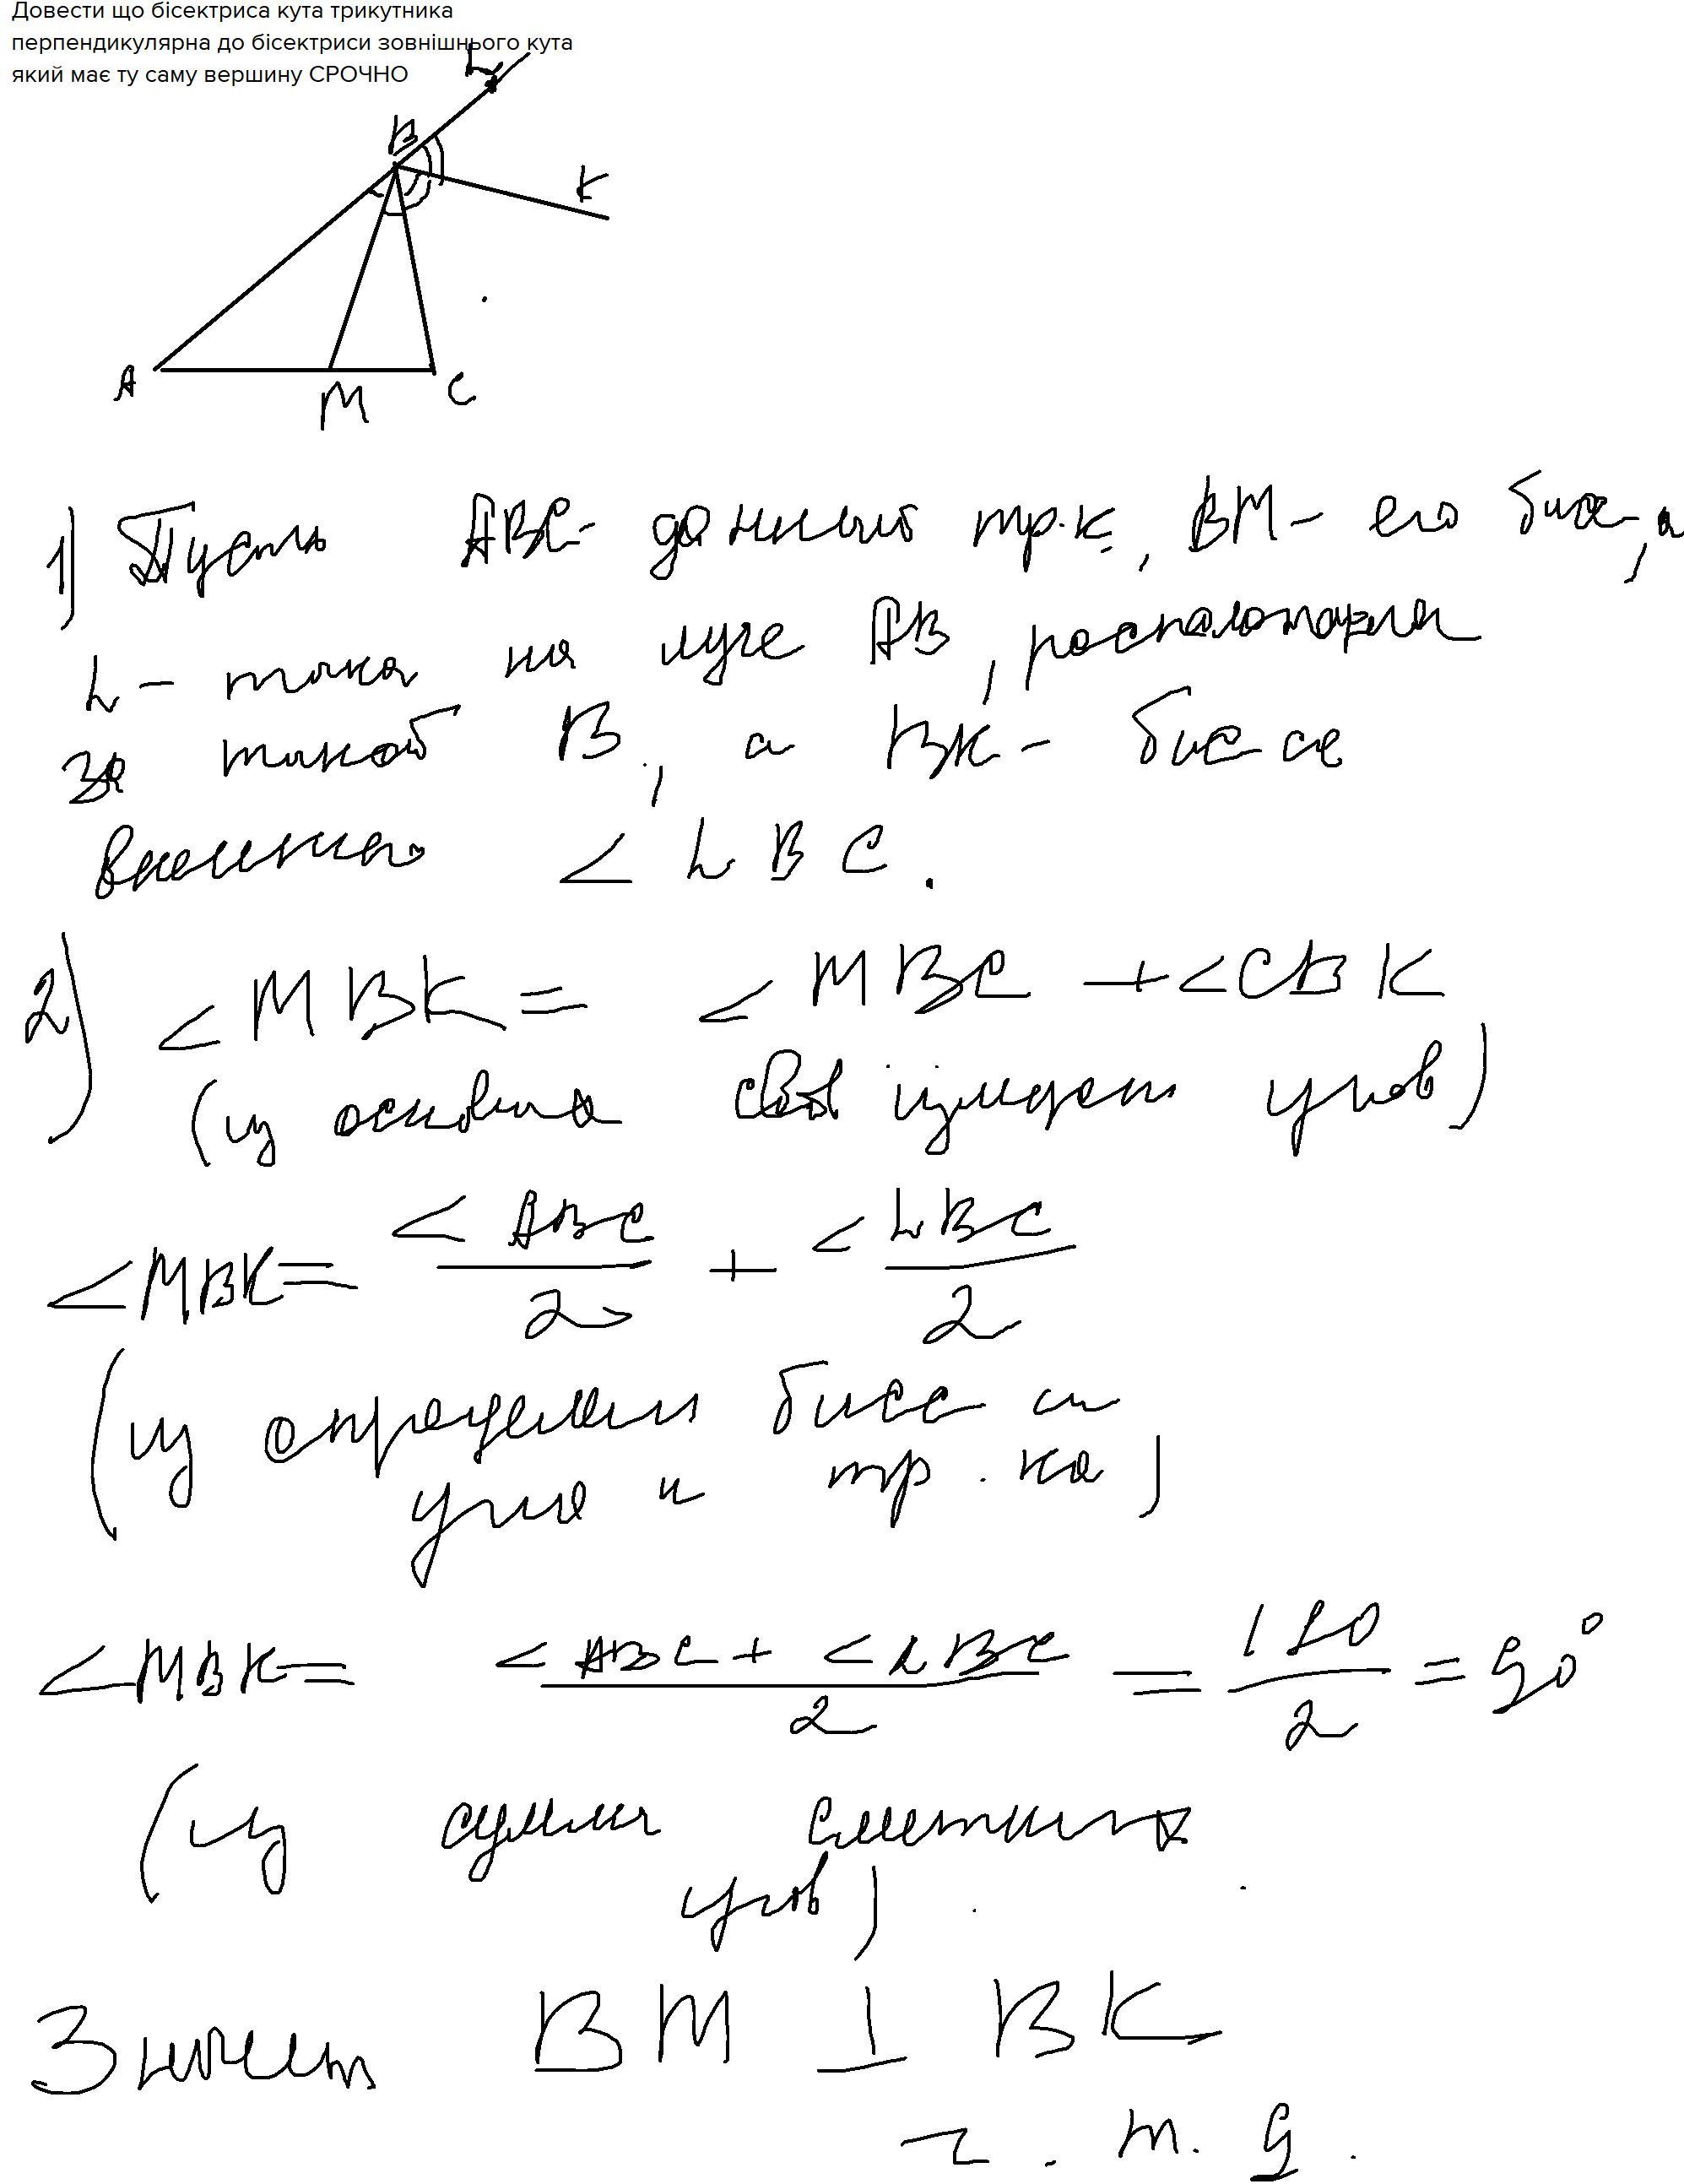 Довести що бісектриса кута трикутника
перпендикулярна до бісектриси зовнішнього кута
який має ту саму вершину СРОЧНО
L
B
K
A
M
C
1) Пусть ABC - данный тр.к, BM - его бисс, а
L - точка на луче AB, расположена
за точкой B, а BK - бисса
внешнего < LBC.
2) < MBK = < MBC + < CBK
(из основна свой измерен углов)
< MBK = < ABC / 2 + < LBC / 2
(из определен бисс
угла и тр.ка)
< MBK = < ABC + < LBC / 2 = 180 / 2 = 90°
(из суммы смежных
углов)
Значит BM ⊥ BK
ч.т.д.